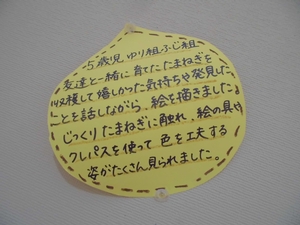 5歳児 ゆり組 ふじ組
友達と一緒に育てたたまねぎを
収穫して嬉しかった気持ちや発見した
ことを話しながら、絵を描きました。
じっくりたまねぎに触れ、絵の具や
クレパスを使って色を工夫する
姿がたくさん見られました。